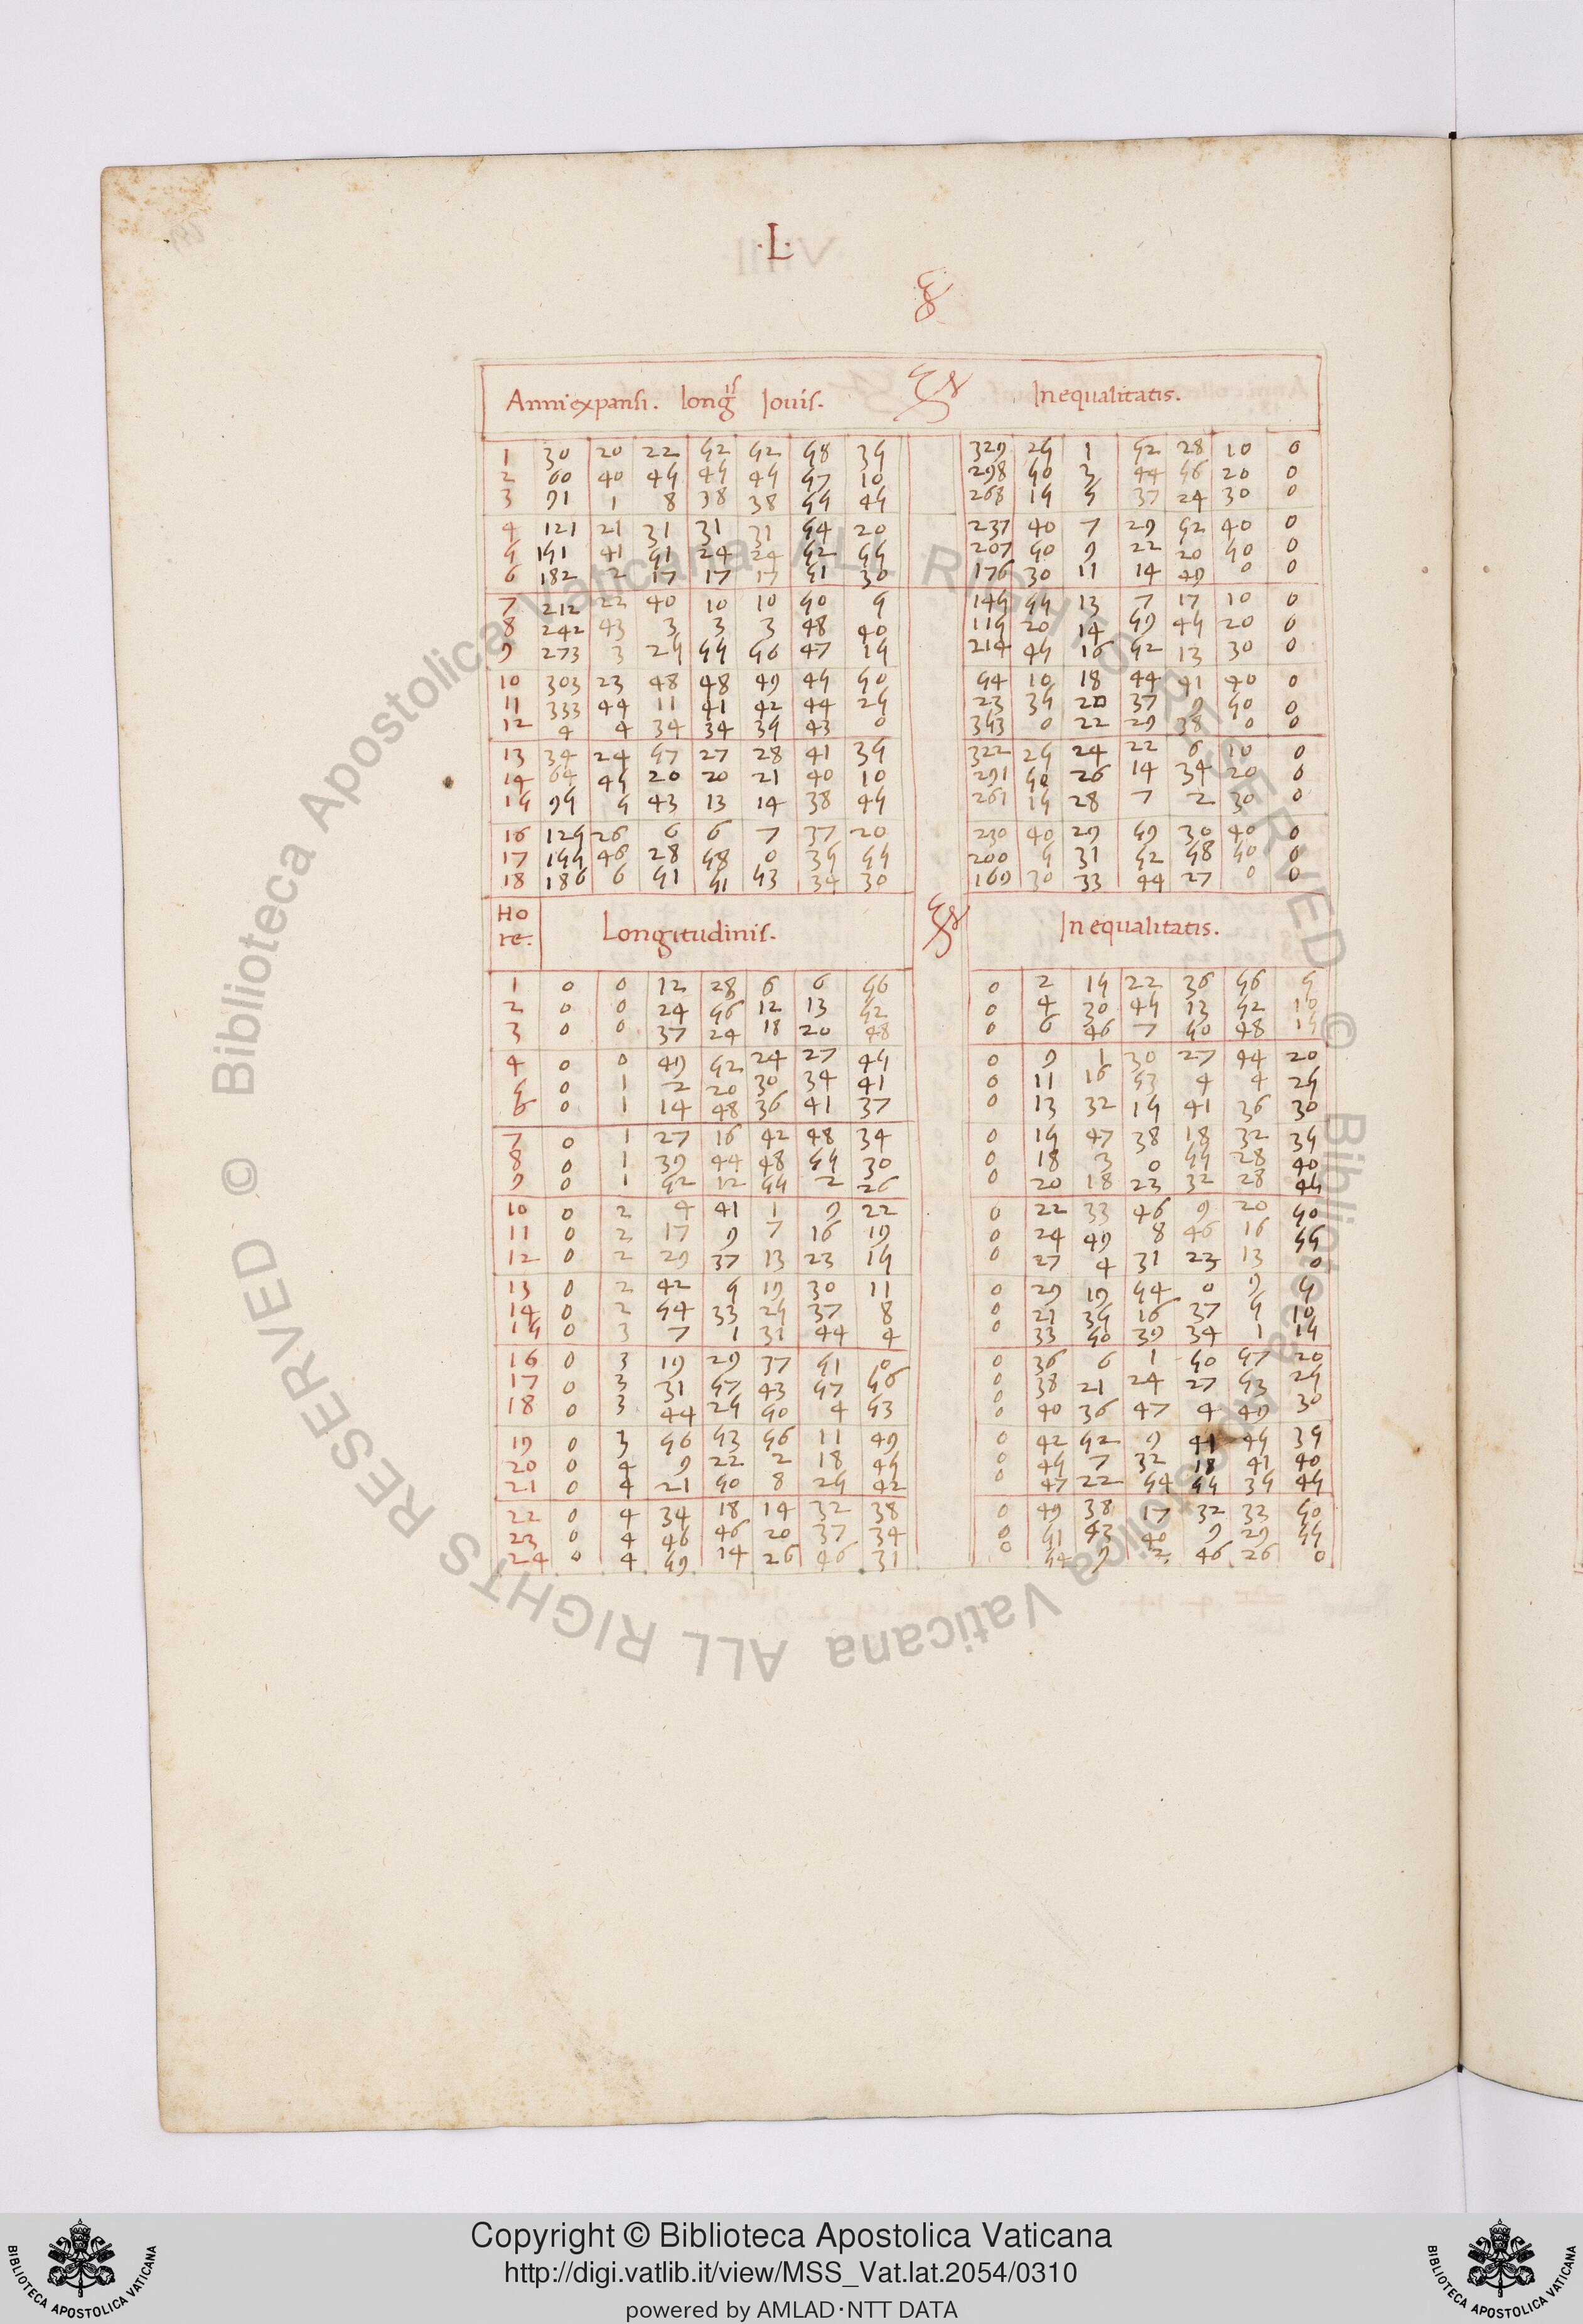 ·L·
Anni expansi. longis Iovis. Inequalitatis.
1 30 20 22 52 52 58 35 329 25 1 52 28 10 0
2 60 40 45 45 45 57 10 298 50 3 44 56 20 0
3 91 1 8 38 38 55 45 268 15 5 37 24 30 0
4 121 21 31 31 31 54 20 237 40 7 29 52 40 0
5 151 41 51 24 24 52 55 207 50 9 22 20 50 0
6 182 2 17 17 17 51 30 176 30 11 14 49 0 0
7 212 22 40 10 10 50 5 145 55 13 7 17 10 0
8 242 43 3 3 3 48 40 115 20 14 59 45 20 0
9 273 3 25 55 56 47 15 214 45 16 52 13 30 0
10 303 23 48 48 49 45 50 54 10 18 44 41 40 0
11 333 44 11 41 42 44 25 23 35 20 37 9 50 0
12 4 4 34 34 35 43 0 353 0 22 29 38 0 0
13 34 24 57 27 28 41 35 322 25 24 22 6 10 0
14 64 45 20 20 21 40 10 291 50 26 14 34 20 0
15 95 5 43 13 14 38 45 261 15 28 7 2 30 0
16 125 26 6 6 7 37 20 230 40 29 59 30 40 0
17 155 46 28 58 0 35 55 200 5 31 52 58 50 0
18 186 6 51 51 53 34 30 169 30 33 44 27 0 0
Ho
re. Longitudinis. Inequalitatis.
1 0 0 12 28 6 6 56 0 2 15 22 36 56 5
2 0 0 24 56 12 13 52 0 4 30 45 13 52 10
3 0 0 37 24 18 20 48 0 6 46 7 50 48 15
4 0 0 49 52 24 27 45 0 9 1 30 27 44 20
5 0 1 2 20 30 34 41 0 11 16 53 4 4 25
6 0 1 14 48 36 41 37 0 13 32 15 41 36 30
7 0 1 27 16 42 48 34 0 15 47 38 18 32 35
8 0 1 39 44 48 55 30 0 18 3 0 55 28 40
9 0 1 52 12 55 2 26 0 20 18 23 32 28 45
10 0 2 4 41 1 9 22 0 22 33 46 9 20 50
11 0 2 17 9 7 16 19 0 24 49 8 46 16 55
12 0 2 29 37 13 23 15 0 27 4 31 23 13 0
13 0 2 42 5 19 30 11 0 29 19 54 0 9 5
14 0 2 54 33 25 37 8 0 21 35 16 37 5 10
15 0 3 7 1 31 44 4 0 33 50 39 34 1 15
16 0 3 19 29 37 51 0 0 36 6 1 50 57 20
17 0 3 31 57 43 57 56 0 38 21 24 27 53 25
18 0 3 44 25 50 4 53 0 40 36 47 4 49 30
19 0 3 56 53 56 11 49 0 42 52 9 41 45 35
20 0 4 9 22 2 18 45 0 45 7 32 18 41 40
21 0 4 21 50 8 25 42 0 47 22 54 55 35 45
22 0 4 34 18 14 32 38 0 49 38 17 32 33 50
23 0 4 46 46 20 37 34 0 51 43 40 9 29 55
24 0 4 59 14 26 46 31 0 54 9 2 46 26 0
© Biblioteca Apostolica Vaticana ALL RIGHTS RESERVED © Biblioteca Apostolica Vaticana ALL RIGHTS RESERVED
Copyright © Biblioteca Apostolica Vaticana
http://digi.vatlib.it/view/MSS_Vat.lat.2054/0310
powered by AMLAD·NTT DATA
BIBLIOTECA APOSTOLICA VATICANA
BIBLIOTECA APOSTOLICA VATICANA